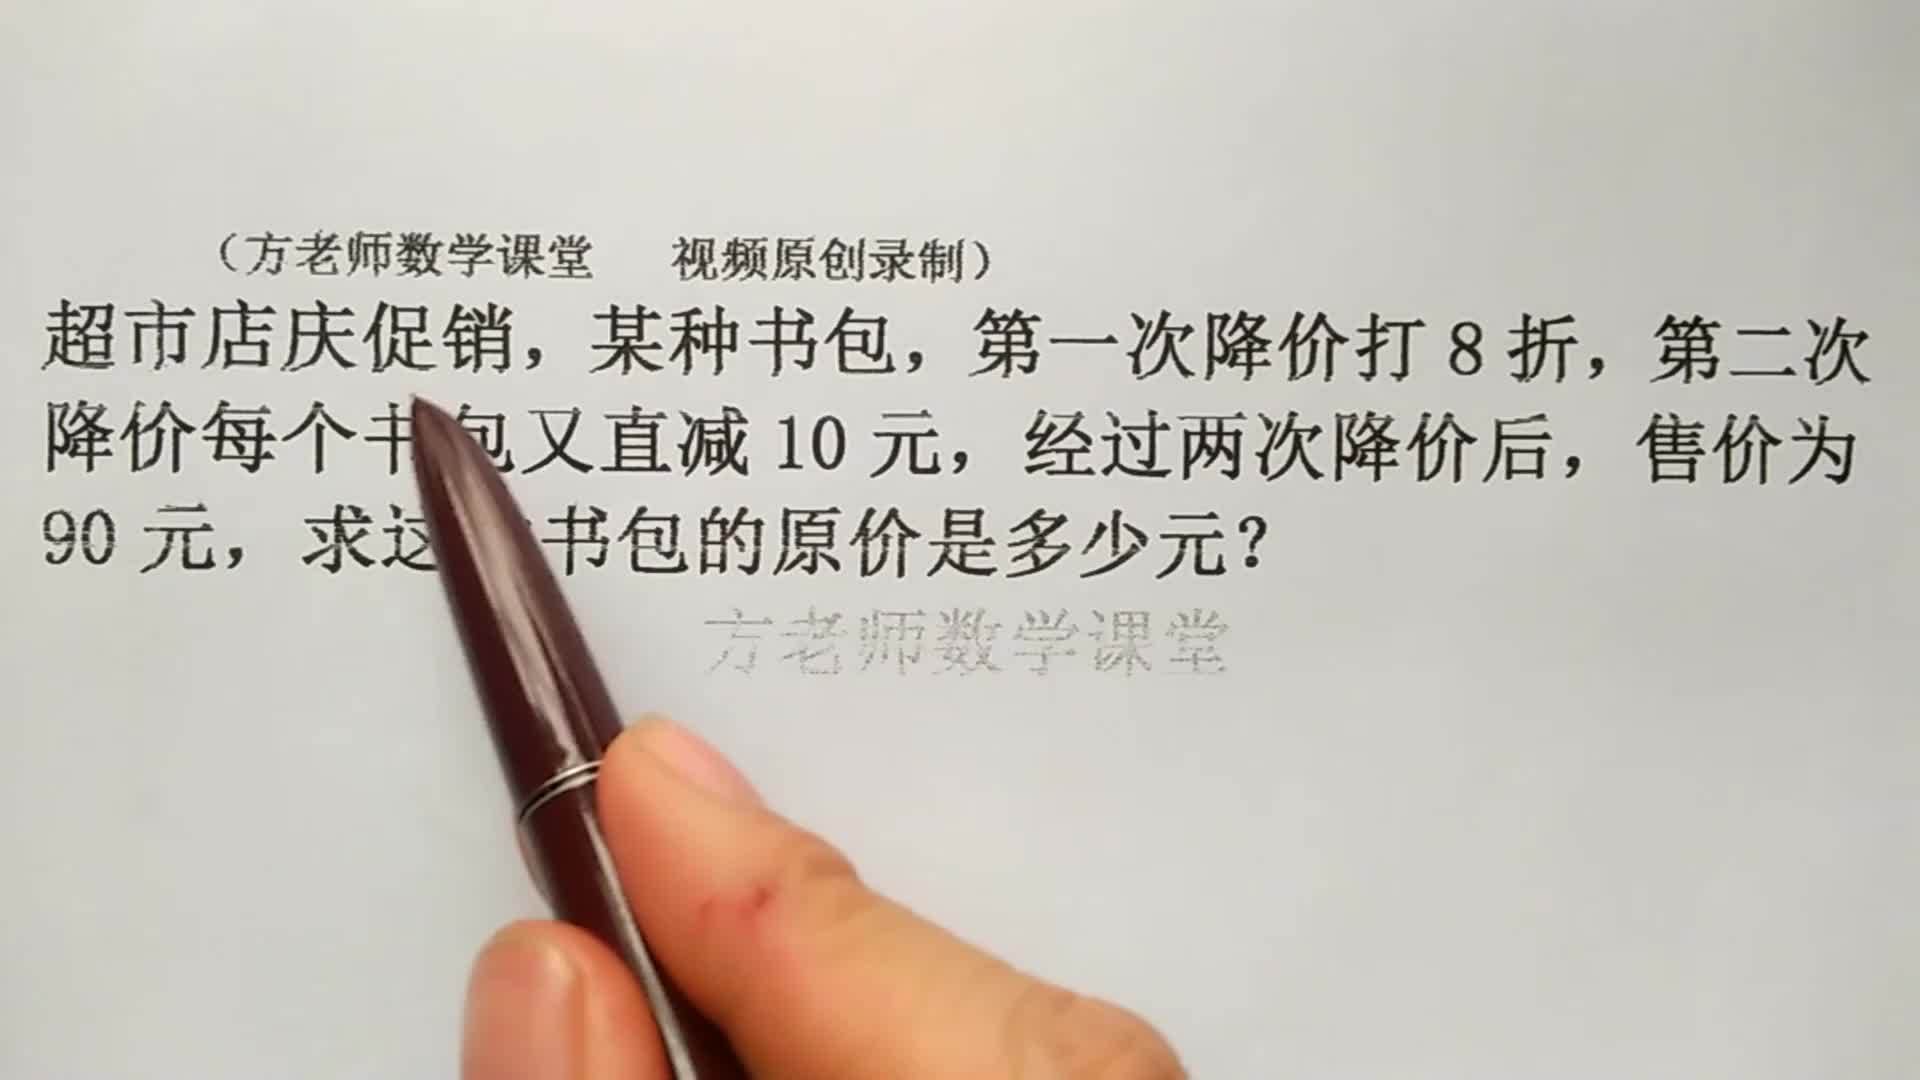 （方老师数学课� 视频原创录制）
超市店庆促销，某种书包，第一次降价打8折，第二次
降价每个书包又直减10元，经过两次降价后，售价为
90元，求这 书包的原价是多少元？
方老师数学课堂